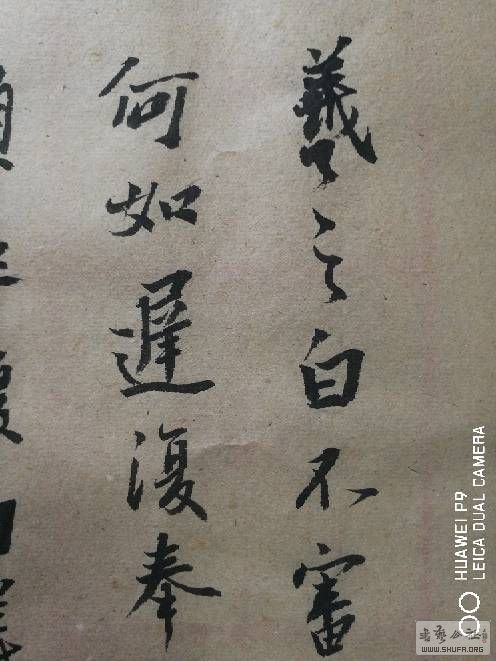 羲之白不審
何如遲復奉
HUAWEI P9
LEICA DUAL CAMERA
WWW.SHUFA.ORG